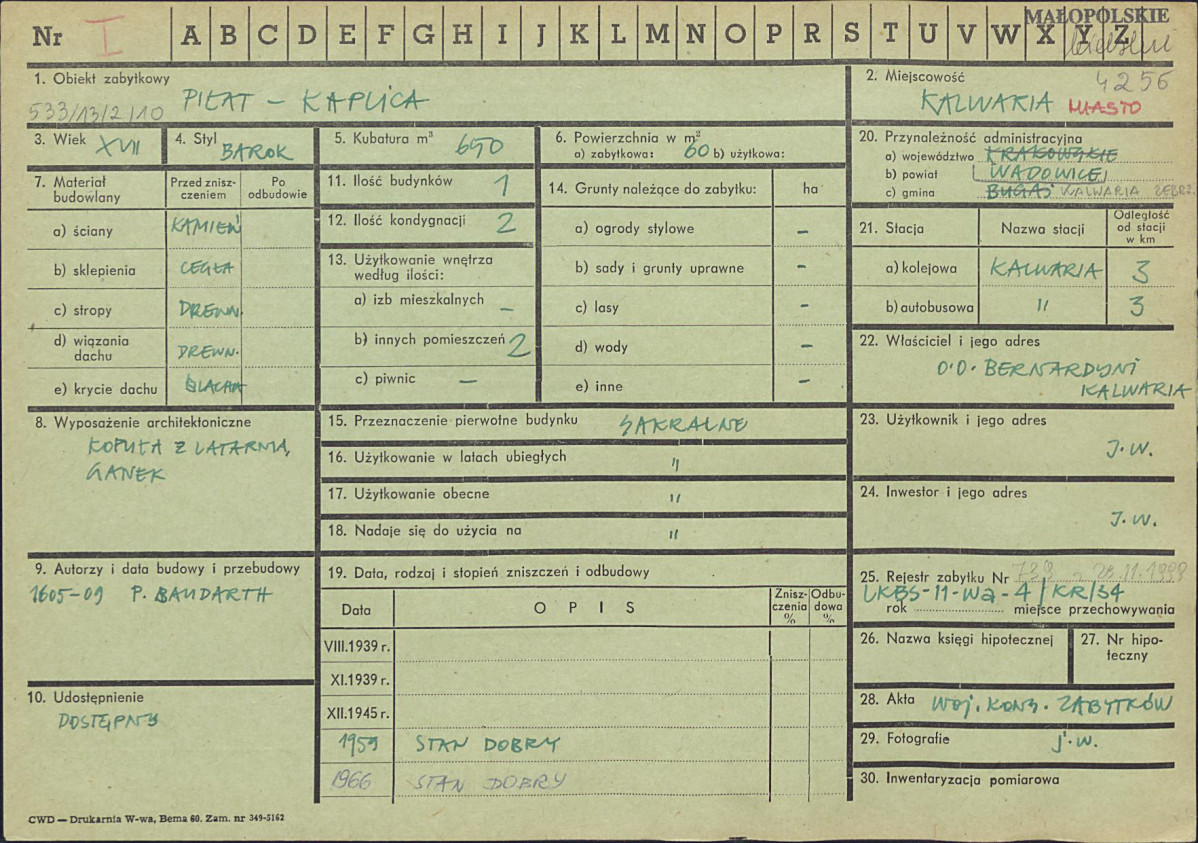 MAŁOPOLSKIE
Nr I A B C D E F G H I J K L M N O P R S T U V W X Y Z
1. Obiekt zabytkowy
533/13/2/10 PIŁAT - KAPLICA
2. Miejscowość 4256
KALWARIA MIASTO
3. Wiek XVII
4. Styl BAROK
5. Kubatura m³ 650
6. Powierzchnia w m²
a) zabytkowa: 60 b) użytkowa:
20. Przynależność administracyjna
a) województwo KRAKOWSKIE
b) powiat WADOWICE
c) gmina BUGAJ KALWARIA ZEBRZ.
7. Materiał budowlany
Przed zniszczeniem
Po odbudowie
a) ściany KAMIEŃ
b) sklepienia CEGŁA
c) stropy DREWN.
d) wiązania dachu DREWN.
e) krycie dachu BLACHA
11. Ilość budynków 1
12. Ilość kondygnacji 2
13. Użytkowanie wnętrza
według ilości:
a) izb mieszkalnych –
b) innych pomieszczeń 2
c) piwnic –
14. Grunty należące do zabytku: ha
a) ogrody stylowe –
b) sady i grunty uprawne –
c) lasy –
d) wody –
e) inne –
21. Stacja Nazwa stacji Odległość od stacji w km
a) kolejowa KALWARIA 3
b) autobusowa " 3
22. Właściciel i jego adres
O.O. BERNARDYNI
KALWARIA
8. Wyposażenie architektoniczne
KOPUŁA Z LATARNIĄ,
GANEK
15. Przeznaczenie pierwotne budynku SAKRALNE
16. Użytkowanie w latach ubiegłych "
17. Użytkowanie obecne "
18. Nadaje się do użycia na "
23. Użytkownik i jego adres
J.W.
24. Inwestor i jego adres
J.W.
9. Autorzy i data budowy i przebudowy
1605-09 P. BAUDARTH
19. Data, rodzaj i stopień zniszczeń i odbudowy
Data OPIS Zniszczenia % Odbudowa %
VIII.1939 r.
XI.1939 r.
XII.1945 r.
1959 STAN DOBRY
1966 STAN DOBRY
10. Udostępnienie
DOSTĘPNY
25. Rejestr zabytku Nr
LKBS-11-Wa-4/KR/34
rok miejsce przechowywania
26. Nazwa księgi hipotecznej
27. Nr hipoteczny
28. Akta WOJ. KONS. ZABYTKÓW
29. Fotografie j.w.
30. Inwentaryzacja pomiarowa
CWD — Drukarnia W-wa, Bema 60. Zam. nr 349-5162